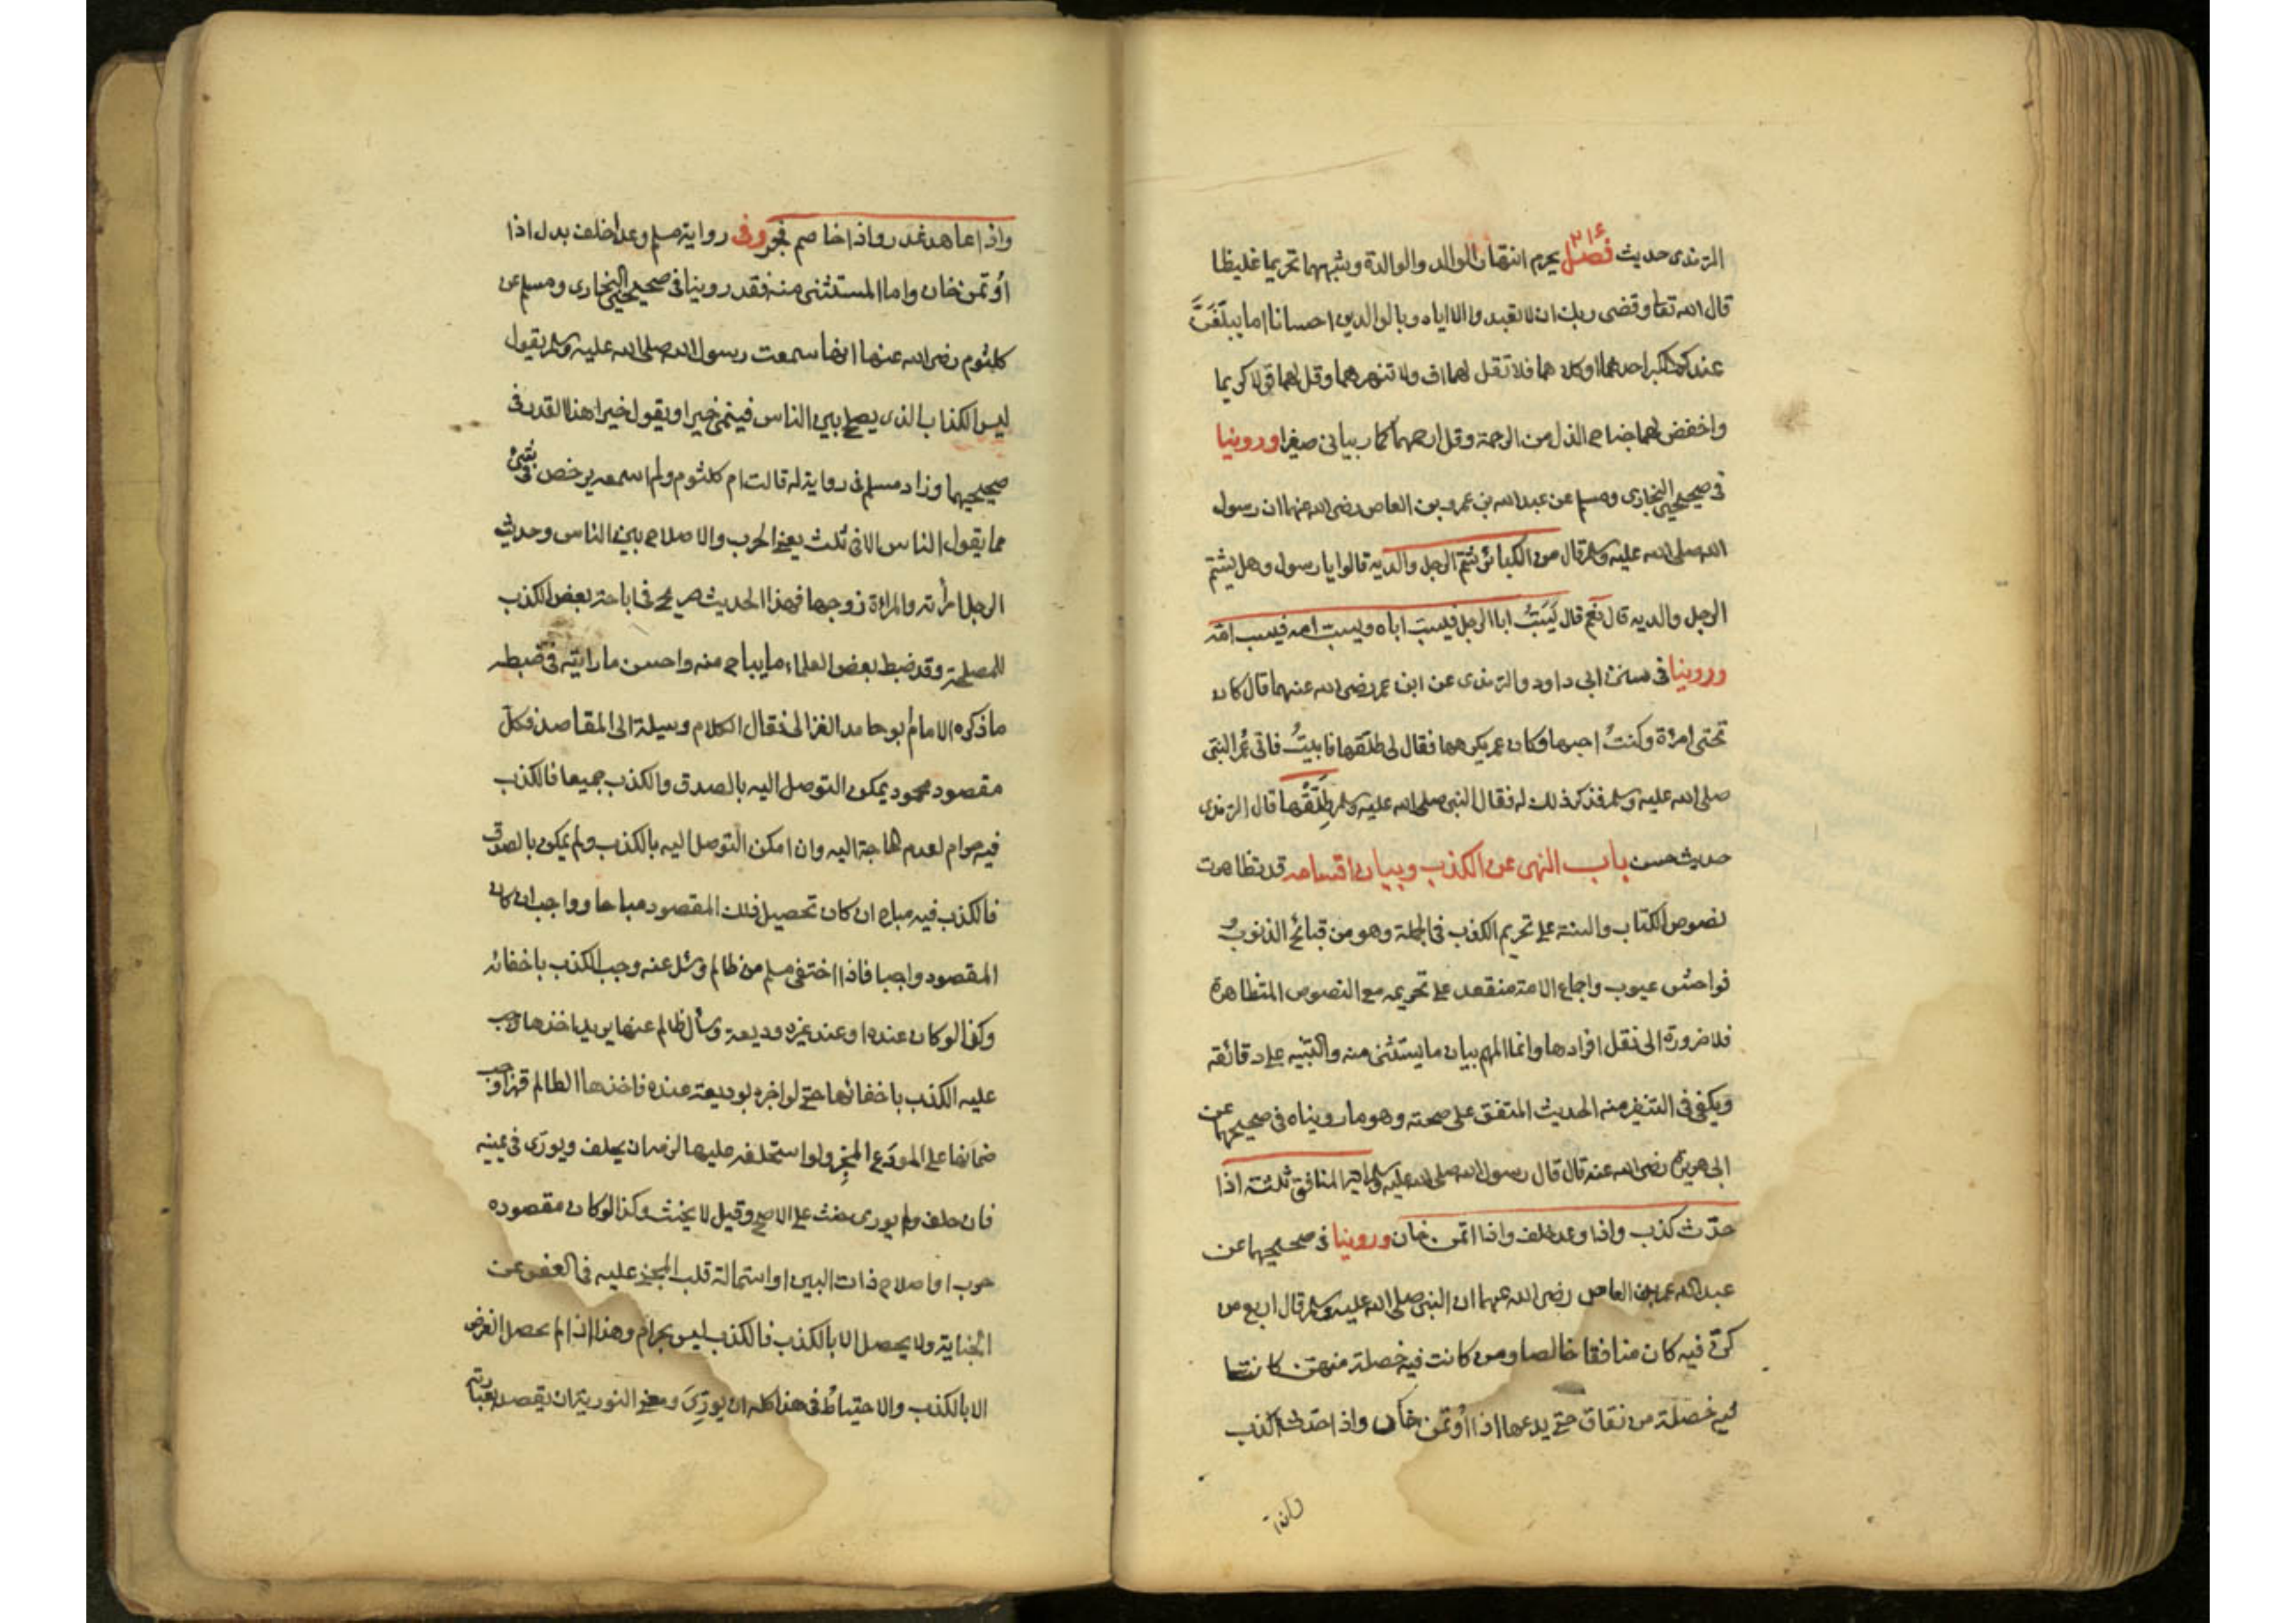 الترمذى حديث فصل يحرم انتهار الوالد والوالدة وشبههما تحريما غليظا
قال الله تعا وقضى ربك ان لا تعبدوا الا اياه وبالوالدين احسانا اما يبلغَنَّ
عندك الكبر احدهما او كلاهما فلا تقل لهما اف ولا تنهرهما وقل لهما قولا كريما
واخفض لهما جناح الذل من الرحمة وقل ارحمهما كما ربيانى صغيرا وروينا
فى صحيحى البخارى ومسلم عن عبدالله بن عمرو بن العاص رضى الله عنهما ان رسول
الله صلى الله عليه وسلم قال من الكبائر شتم الرجل والديه قالوا يا رسول وهل يشتم
الرجل والديه قال نعم قال يَسُبُّ ابا الرجل فيسب اباه ويسب امه فيسب امه
وروينا فى سنن ابى داود والترمذى عن ابن عمر رضى الله عنهما قال كان
تحتى امرأة وكنتُ احبها وكان عمر يكرهها فقال لى طلقها فابيتُ فاتى عُمر النبى
صلى الله عليه وسلم فذكر ذلك له فقال النبى صلى الله عليه وسلم طَلِّقْها قال الترمذى
حديث حسن باب النهى عن الكذب وبيان اقسامه قد تظاهرت
نصوص الكتاب والسنة على تحريم الكذب فى الجملة وهو من قبائح الذنوب و
فواحش عيوب واجماع الامة منعقد على تحريمه مع النصوص المتظاهرة
فلا ضرورة الى نقل افرادها وانما المهم بيان ما يستثنى منه والتنبيه على دقائقه
ويكفى فى التنفير منه الحديث المتفق على صحته وهو ما رويناه فى صحيحهما عن
ابى هريرة رضى الله عنه قال قال رسول الله صلى الله عليه وسلم اية المنافق ثلثة اذا
حدّث كذب واذا وعد خلف واذا اتمن خان وروينا فى صحيحيهما عن
عبدالله عمر بن العاص رضى الله عنهما ان النبى صلى الله عليه وسلم قال اربع من
كنّ فيه كان منافقا خالصا ومن كانت فيه خصلة منهن كانت
فيه خصلة من نفاق حتى يدعها اذا اؤتمن خان واذا حدّث كذب
واذا
واذا عاهد غدر واذا خاصم فجر وفى رواية مسلم وعد اخلف بدل اذا
اؤتمن خان واما المستثنى منه فقد روينا فى صحيحى البخارى ومسلم عن
كلثوم رضى الله عنها انها سمعت رسول الله صلى الله عليه وسلم يقول
ليس الكذاب الذى يصلح بين الناس فينمى خيرا او يقول خيرا هذا القدر فى
صحيحيهما وزاد مسلم فى رواية له قالت ام كلثوم ولم اسمعه يرخص فى شئ
مما يقول الناس الا فى ثلث يعنى الحرب والاصلاح بين الناس وحديث
الرجل امرأته والمرأة زوجها فهذا الحديث صريح فى اباحة بعض الكذب
للمصلحة وقد ضبط بعض العلماء ما يباح منه واحسن ما رايته فى ضبطه
ما ذكره الامام ابو حامد الغزالى فقال الكلام وسيلة الى المقاصد فكل
مقصود محمود يمكن التوصل اليه بالصدق والكذب جميعا فالكذب
فيه حرام لعدم الحاجة اليه وان امكن التوصل اليه بالكذب ولم يمكن بالصدق
فالكذب فيه مباح ان كان تحصيل ذلك المقصود مباحا وواجب ان كان
المقصود واجبا فاذا اختفى مسلم من ظالم وسئل عنه وجب الكذب باخفائه
وكذا لو كان عنده او عند غيره وديعة وسأل ظالم عنها يريد اخذها وجب
عليه الكذب باخفائها حتى لو اخبره بوديعة عنده فاخذها الظالم قهرا وجب
ضمانها على المودَع المخبِر ولو استحلفه عليها لزمه ان يحلف ويورّى فى يمينه
فان حلف ولم يورى حنث على الاصح وقيل لا يحنث وكذا لو كان مقصوده
حرب او اصلاح ذات البين او استمالة قلب المجنى عليه فى العفو عن
الجناية ولا يحصل الا بالكذب فالكذب ليس بحرام وهذا اذا لم يحصل الغرض
الا بالكذب والاحتياطُ فى هذا كله ان يورّىَ ومعنى التورية ان يقصد بعبارته